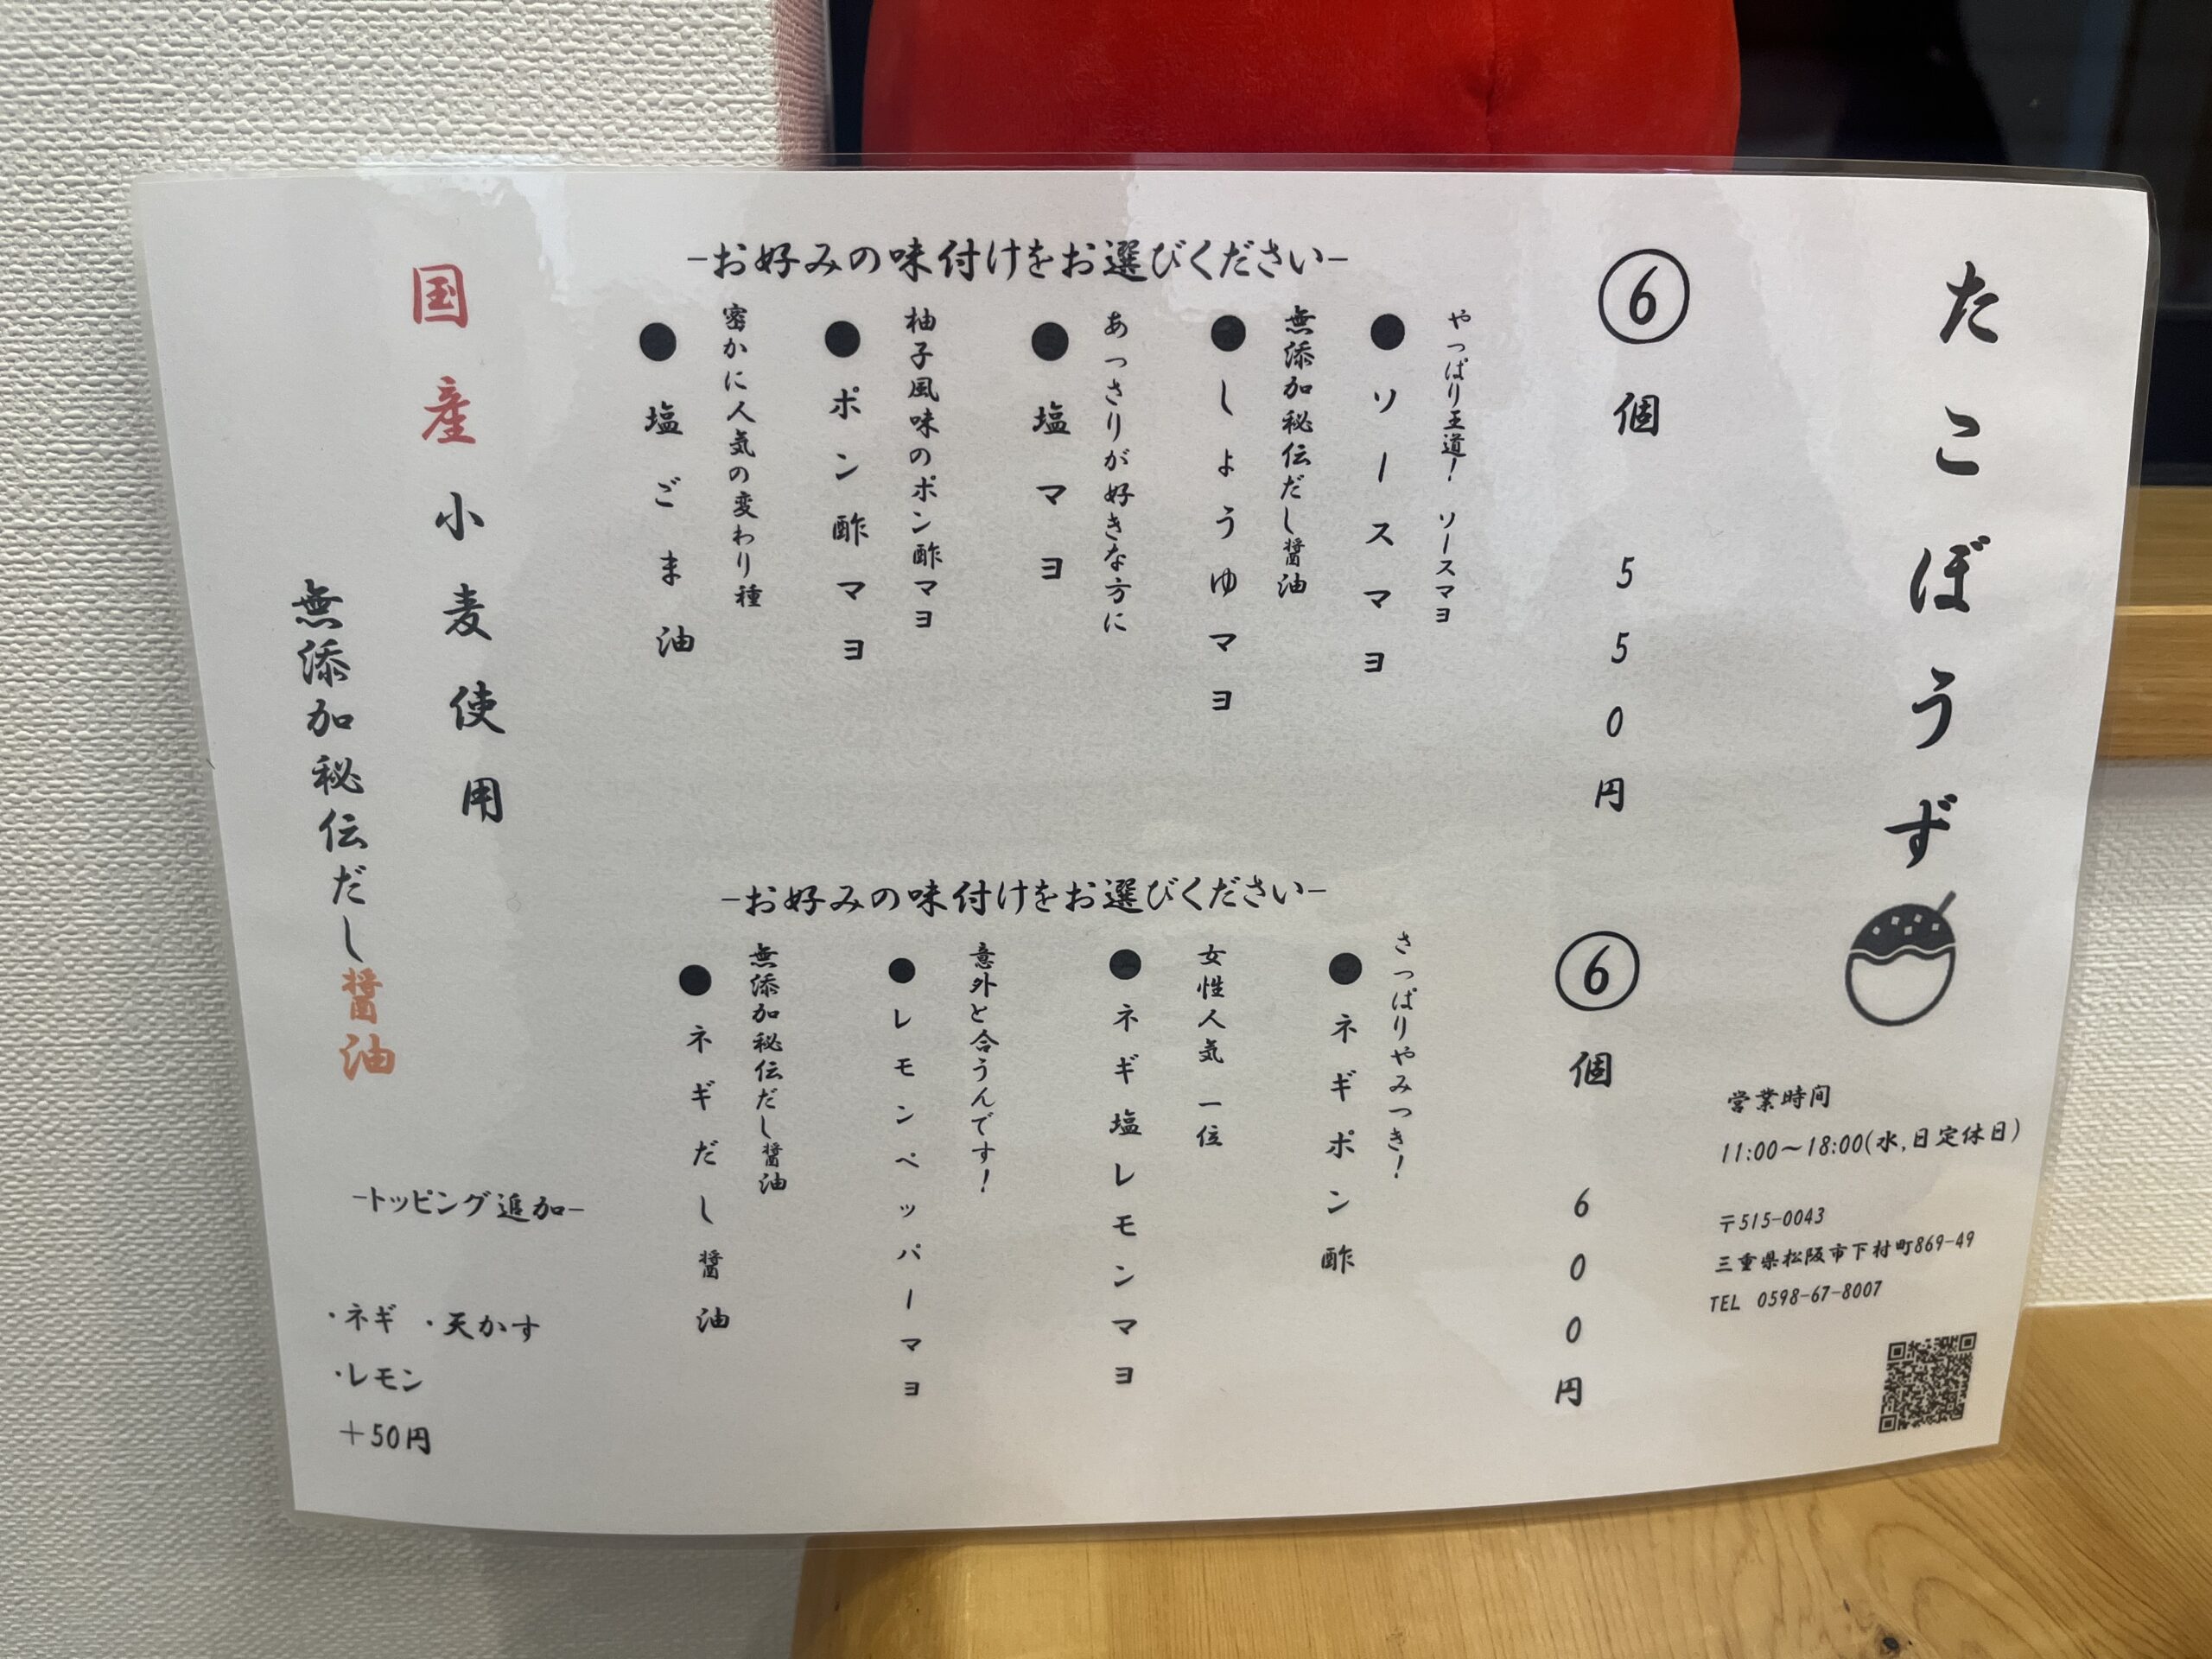 たこぼうず
営業時間
11:00～18:00(水,日定休日)
〒515-0043
三重県松阪市下村町869-49
TEL 0598-67-8007
⑥個 550円
-お好みの味付けをお選びください-
やっぱり王道！ ソースマヨ
●ソースマヨ
無添加秘伝だし醤油
●しょうゆマヨ
あっさりが好きな方に
●塩マヨ
柚子風味のポン酢マヨ
●ポン酢マヨ
密かに人気の変わり種
●塩ごま油
⑥個 600円
-お好みの味付けをお選びください-
さっぱりやみつき！
●ネギポン酢
女性人気 一位
●ネギ塩レモンマヨ
意外と合うんです！
●レモンペッパーマヨ
無添加秘伝だし醤油
●ネギだし醤油
国産小麦使用
無添加秘伝だし醤油
-トッピング追加-
・ネギ ・天かす
・レモン
＋50円